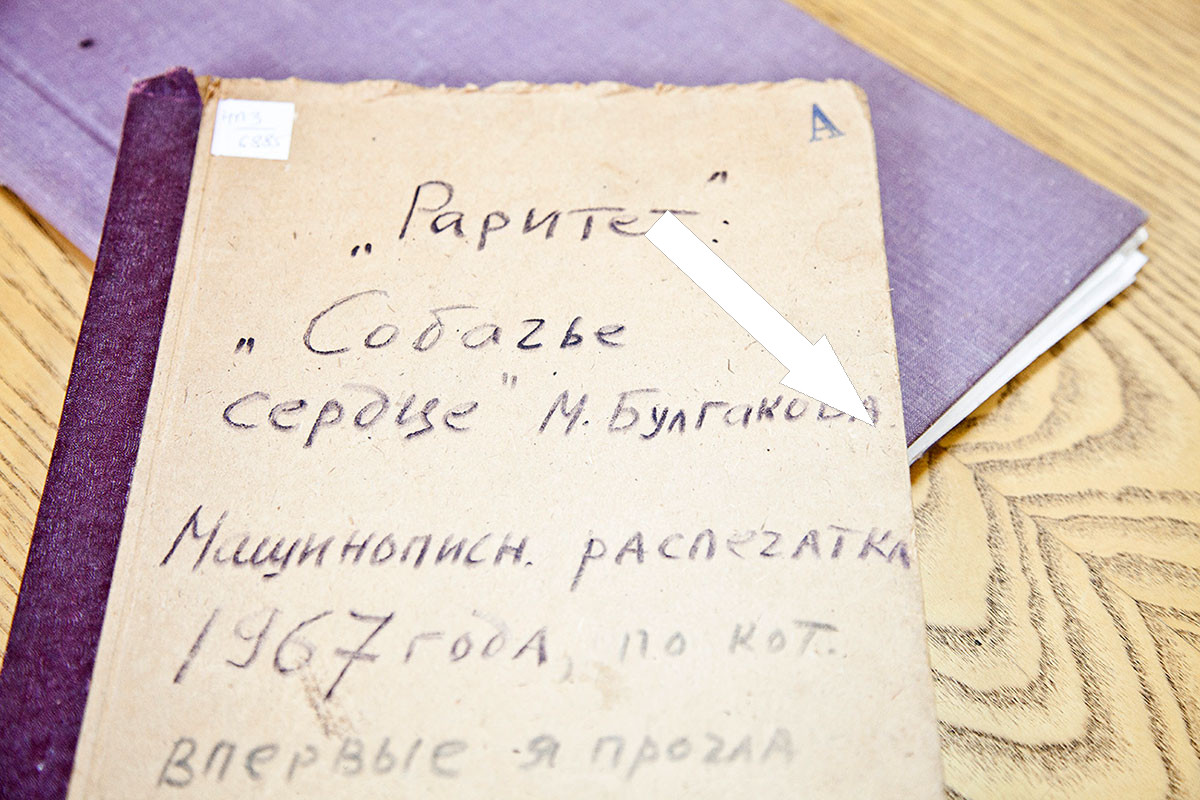 А
„Раритет“:
„Собачье
сердце" М. Булгакова.
Машинописн. распечатка
1967 года, по кот.
впервые я прочла